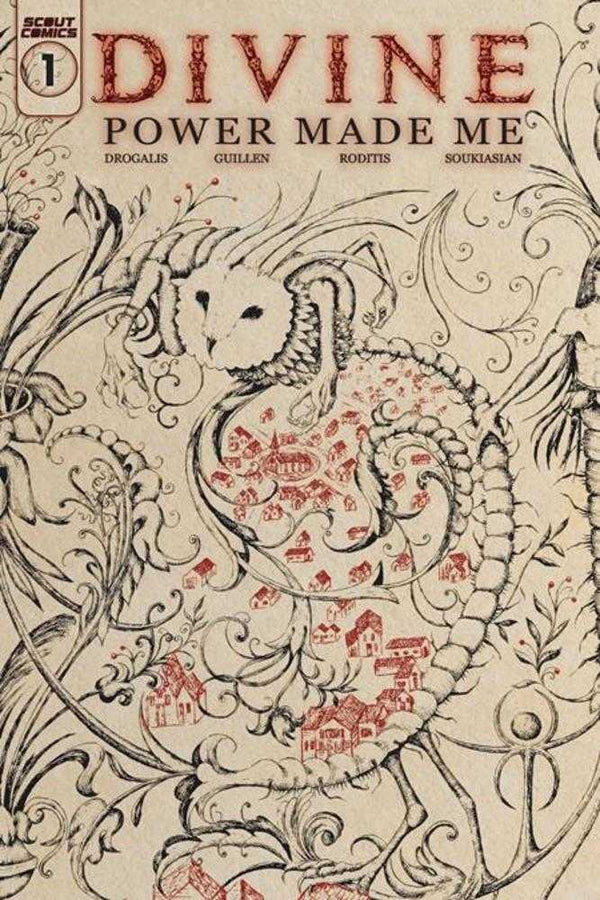 SCOUT
COMICS
1
DIVINE
POWER MADE ME
DROGALIS GUILLEN RODITIS SOUKIASIAN